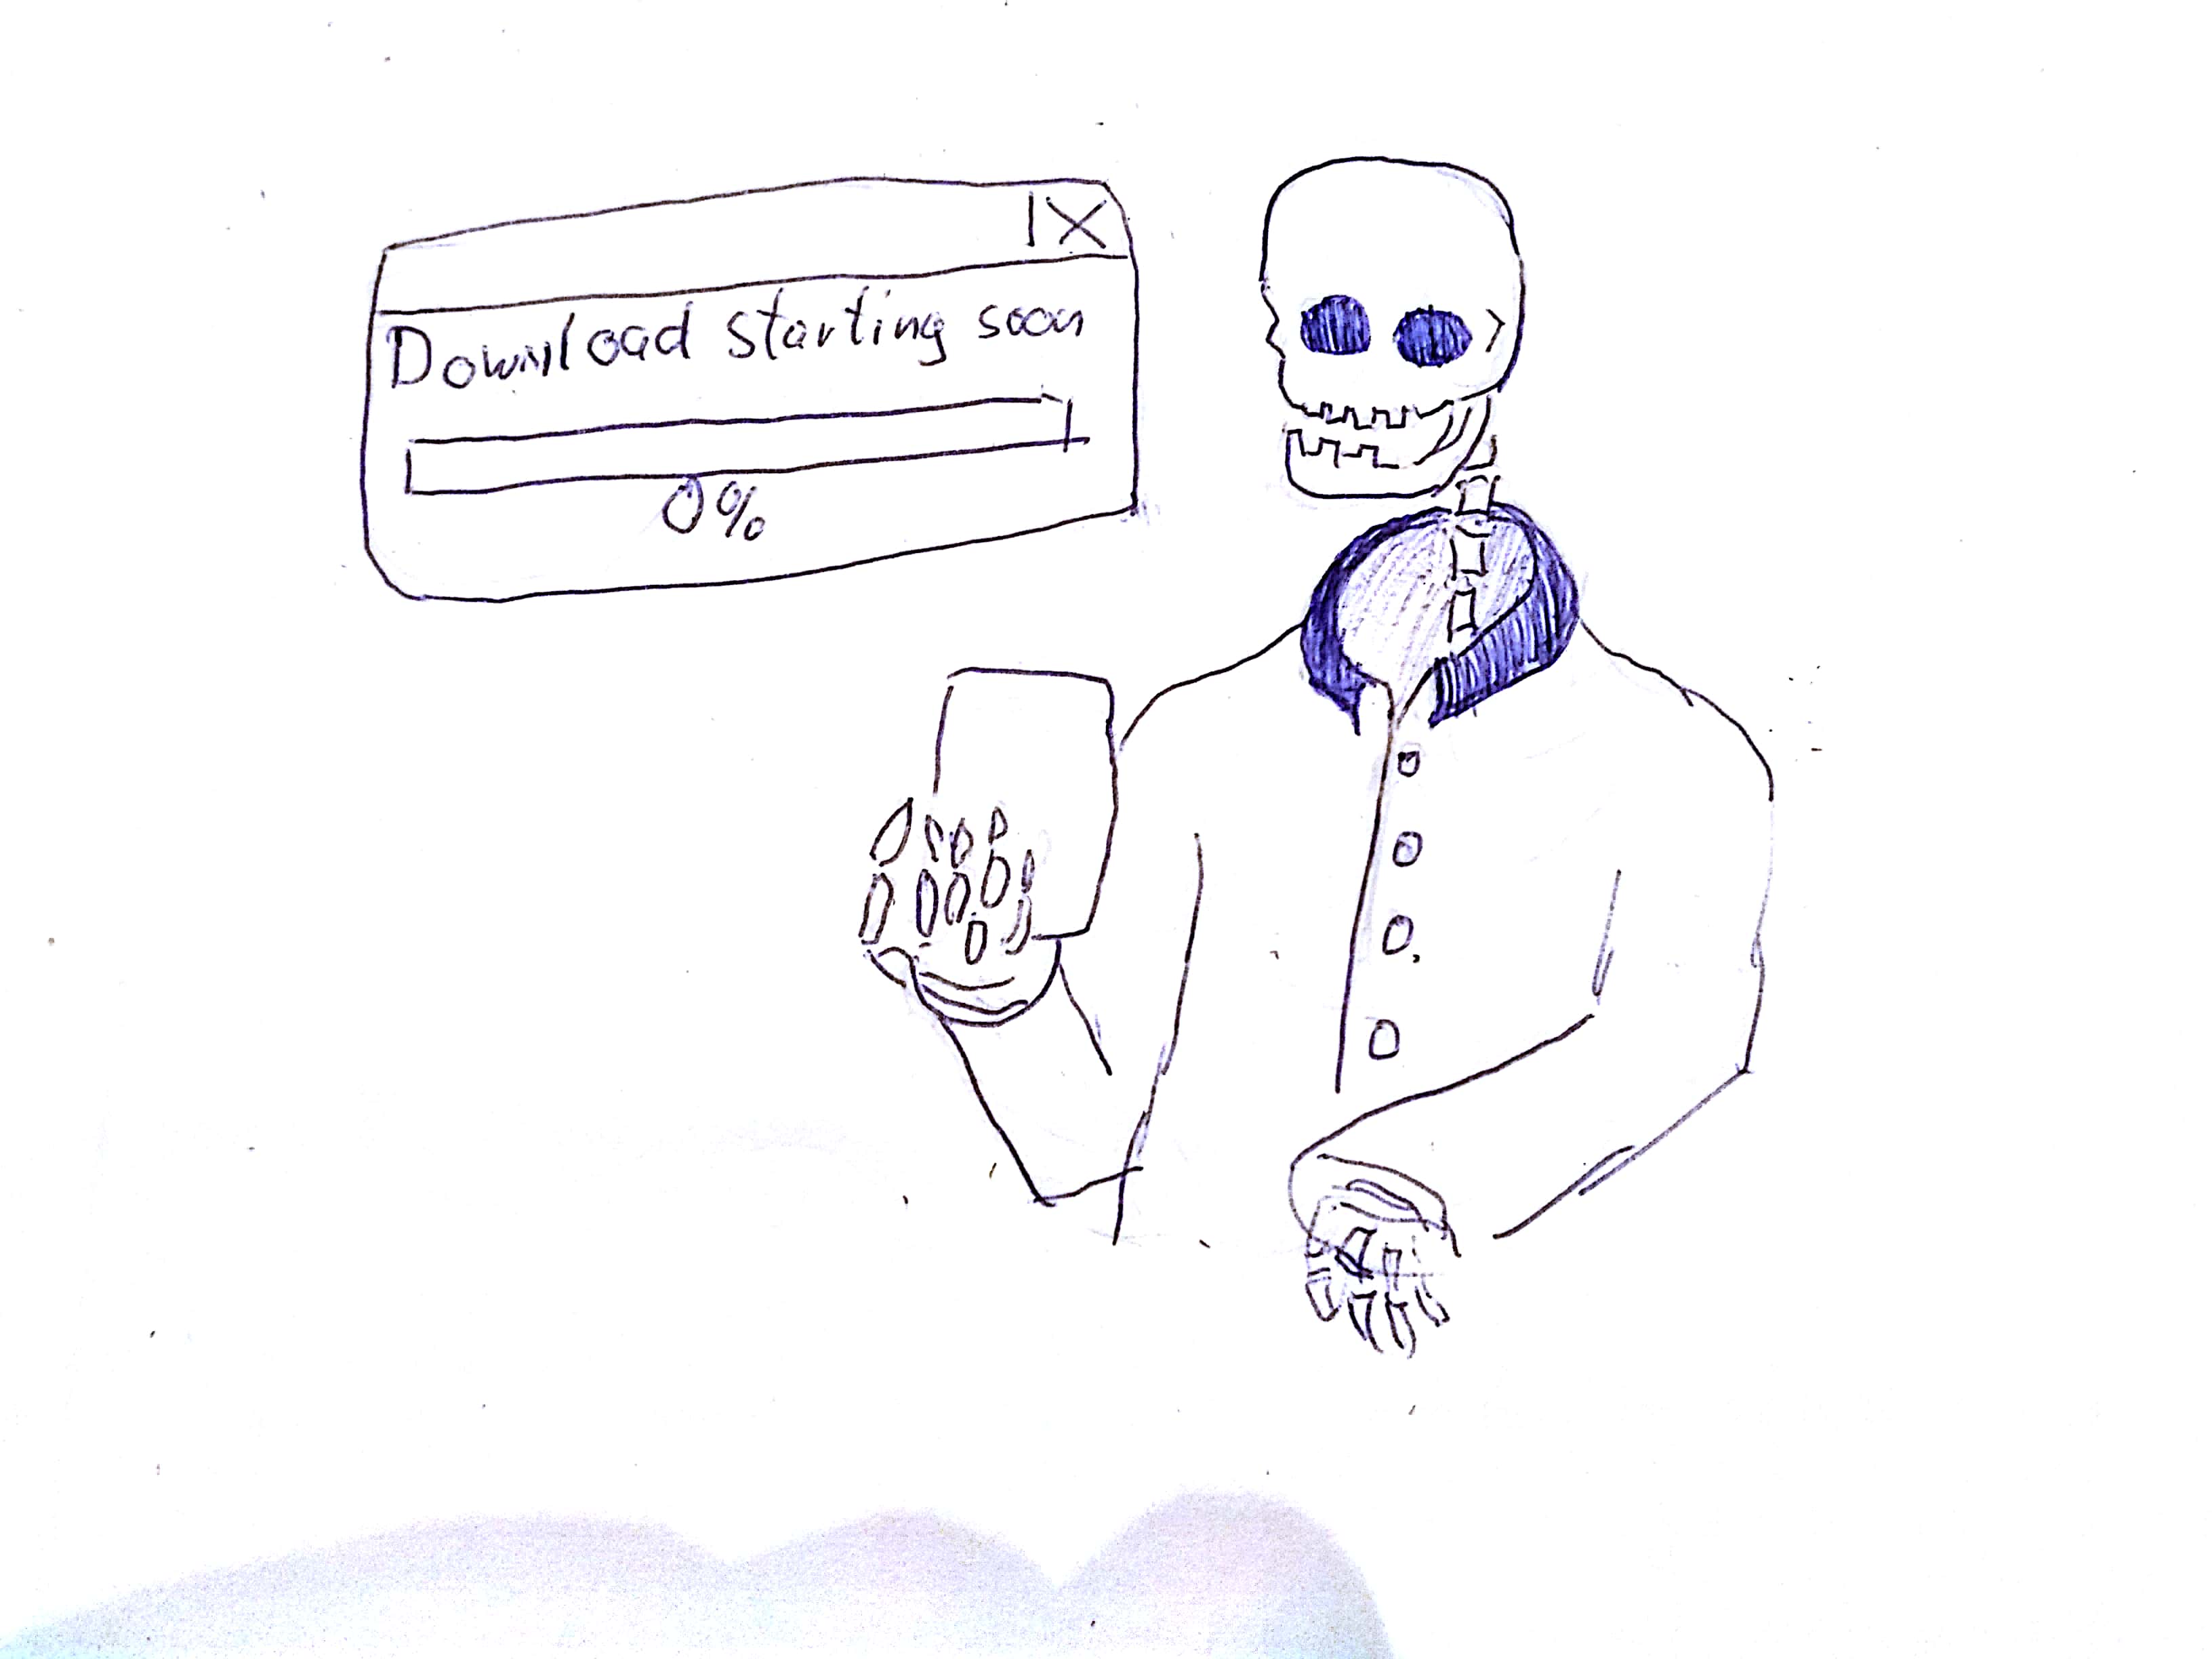 IX
Download starting soon
0%